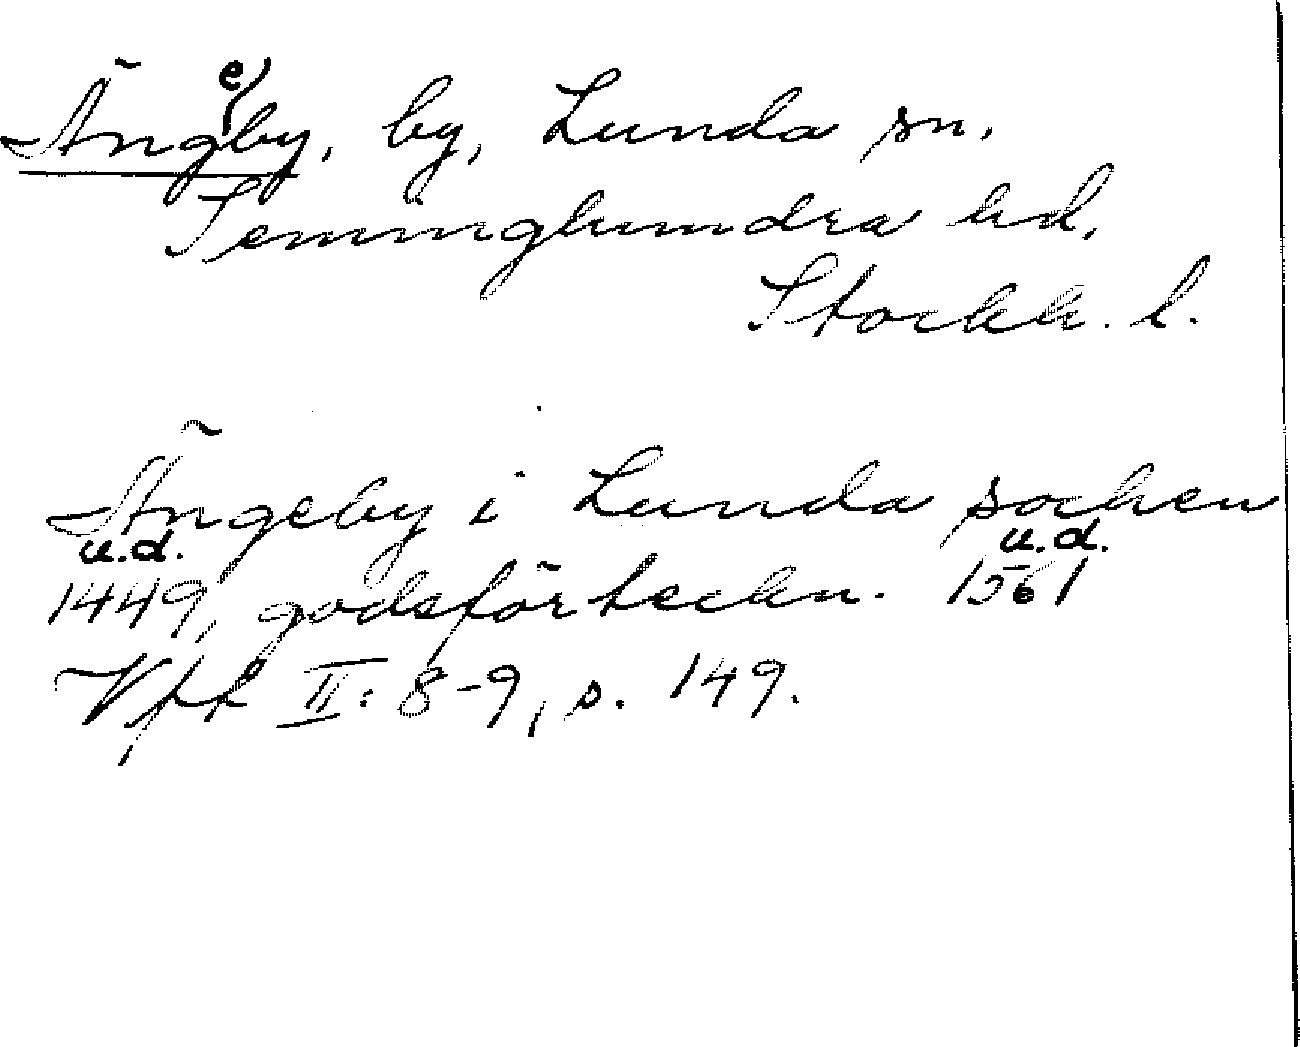 Ängeby, by, Lunda sn.
Seminghundra hd,
Stockh. l.
Ängeby i Lunda socken
u.d. u.d.
1449, godsförteckn. 1561
Vfk II: 8-9, s. 149.